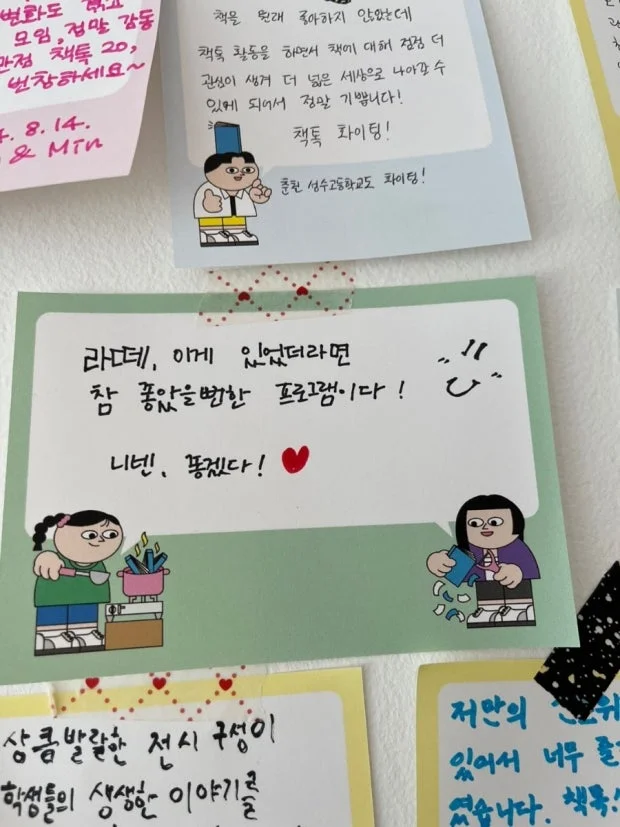 변화도
모임, 정말 감동
만점 책톡 20,
번창하세요~
. 8. 14.
& Min
책을 원래 좋아하지 않았는데
책톡 활동을 하면서 책에 대해 점점 더
관심이 생겨 더 넓은 세상으로 나아갈 수
있게 되어서 정말 기쁩니다!
책톡 화이팅!
춘천 성수고등학교도 화이팅!
라떼, 이게 있었더라면
참 좋았을뻔한 프로그램이다!
니넨, 좋겠다!
상큼발랄한 전시 구성이
학생들의 생생한 이야기를
저만의
있어서 너무
였습니다. 책톡!